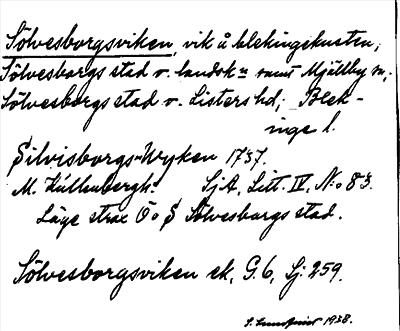 Sölvesborgsviken, vik å blekingekusten;
Sölvesborgs stad o. landsk:n samt Mjällby sn;
Sölvesborgs stad o. Listers hd; Blek-
inge l.
Silvisborgs-Wyken 1737.
M. Kiillenbergh. SjA, Litt. IV, N:o 83.
Läge strax Ö o S Sölvesborgs stad.
Sölvesborgsviken ek, G. 6, Sj: 259.
1938.